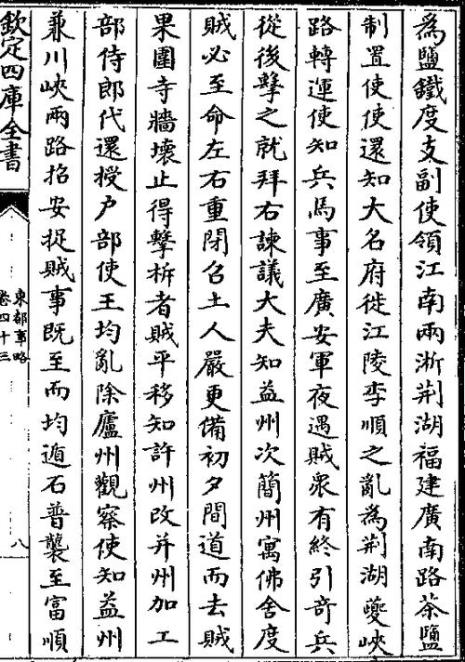 為鹽鐵度支副使領江南兩浙荆湖福建廣南路茶鹽
制置使使還知大名府徙江陵李順之亂為荆湖夔峽
路轉運使知兵馬事至廣安軍夜遇賊衆有終引竒兵
從後擊之就拜右諫議大夫知益州次簡州寓佛舍度
賊必至命左右重閉召土人嚴更備初夕間道而去賊
果圍寺牆壞止得擊柝者賊平移知許州改并州加工
部侍郎代還授户部使王均亂除廬州觀察使知益州
兼川峽兩路招安捉賊事既至而均遁石普襲至富順
欽定四庫全書
東都事略
卷四十三
八